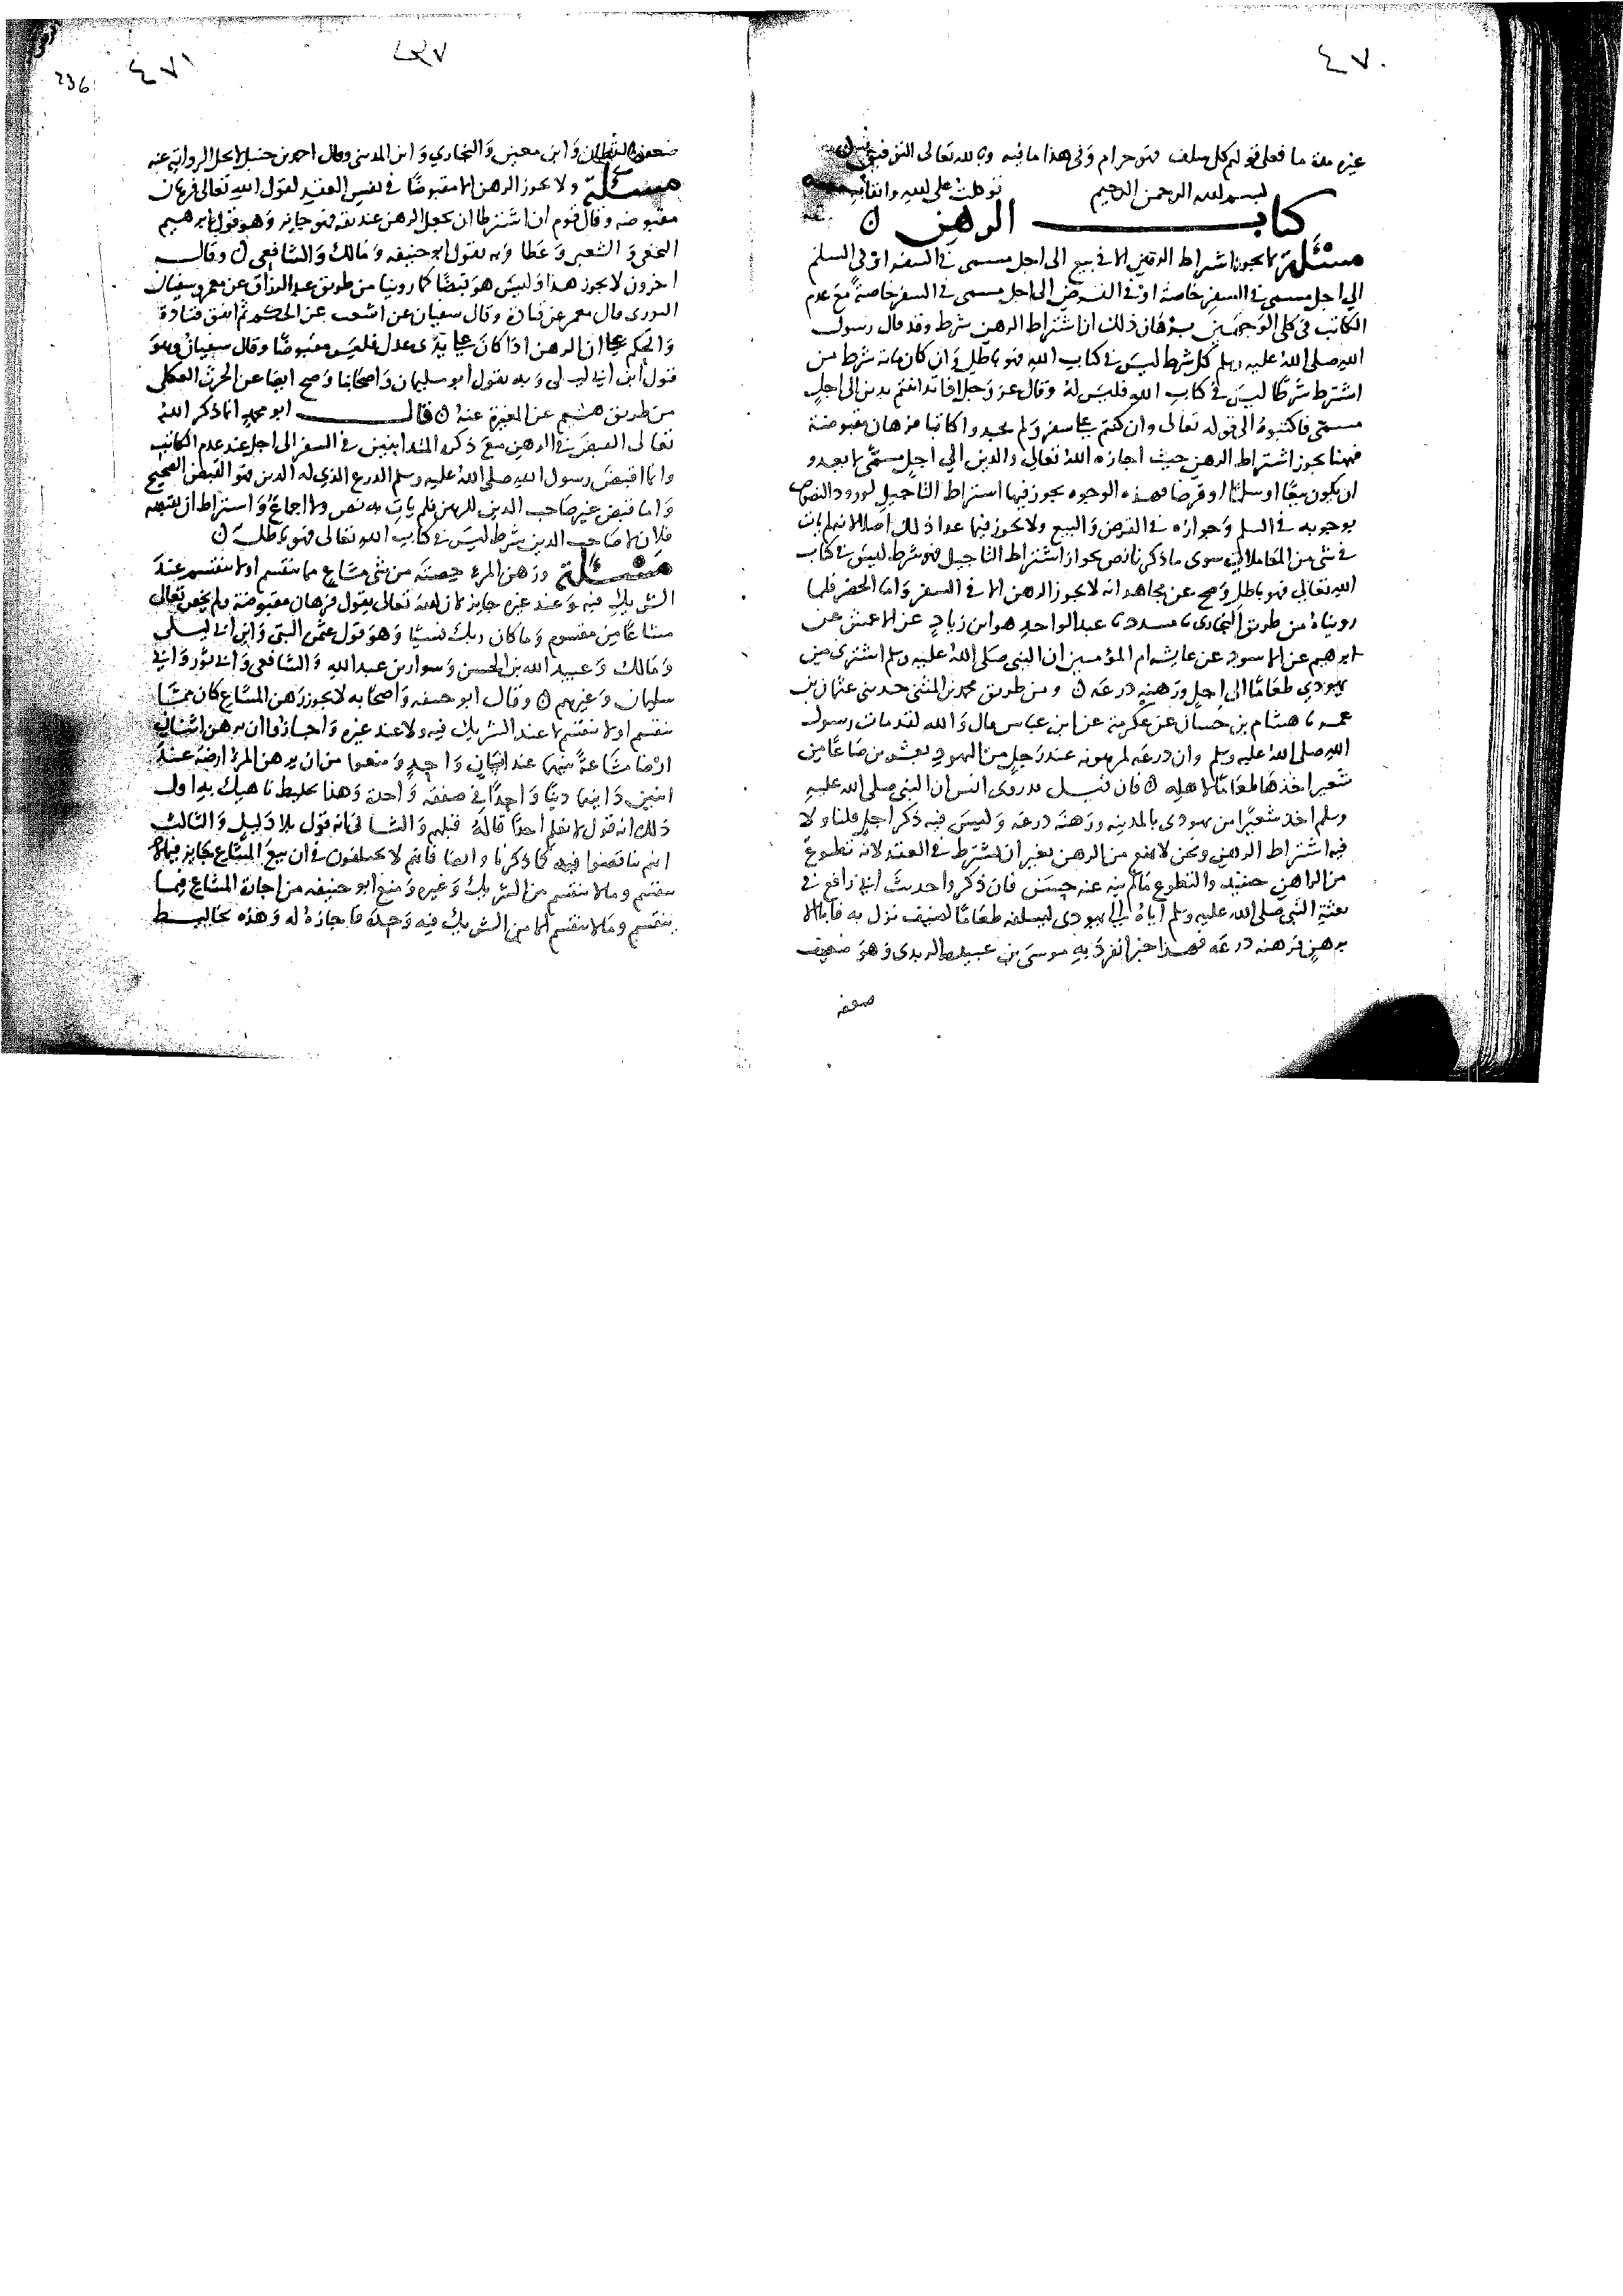 ٤٧٠
غيره منة ما فعلى قولهم كل سلف فهو حرام وفي هذا ما فيه وبالله تعالى التوفيق
بسم الله الرحمن الرحيم توكلت على الله
كتاب الرهن ن
مسئلة لا يجوز اشتراط الرهن الا في بيع الى اجل مسمى في السفر او في السلم
الى اجل مسمى في السفر خاصة او في القرض الى اجل مسمى في السفر خاصة مع عدم
الكاتب في كلى الوجهين برهان ذلك ان اشتراط الرهن شرط وقد قال رسول
الله صلى الله عليه وسلم كل شرط ليس في كتاب الله فهو باطل وان كان مائة شرط من
اشترط شرطا ليس في كتاب الله فليس له وقال عز وجل اذا تداينتم بدين الى اجل
مسمى فاكتبوه الى قوله تعالى وان كنتم على سفر ولم تجدوا كاتبا فرهان مقبوضة
فهنا يجوز اشتراط الرهن حيث اجازه الله تعالى والدين الى اجل مسمى لا يعدو
ان يكون بيعا او سلما او قرضا فهذه الوجوه يجوز فيها اشتراط التاجيل لورود النص
بوجوبه في السلم وجوازه في القرض والبيع ولا يجوز فيما عدا ذلك اصلا لانه لم يات
في شي من المعاملات سوى ما ذكرنا نص بجواز اشتراط التاجيل فهو شرط ليس في كتاب
الله تعالى فهو باطل وصح عن مجاهد انه لا يجوز الرهن الا في السفر واما الحضر فلما
رويناه من طريق البخاري نا مسدد نا عبد الواحد هو ابن زياد عن الاعمش عن
ابرهيم عن الاسود عن عايشه ام المؤمنين ان النبي صلى الله عليه وسلم اشترى من
يهودي طعاما الى اجل ورهنه درعه ن ومن طريق محمد بن المثنى حدثني عثمان بن
عمر نا هشام بن حسان عن عكرمة عن ابن عباس قال والله لقد مات رسول
الله صلى الله عليه وسلم وان درعه لمرهونه عند رجل من اليهود بعشرين صاعا من
شعير اخذها طعاما لاهله ن فان قيل قد روى انس ان النبي صلى الله عليه
وسلم اخذ شعيرا من يهودي بالمدينه ورهنه درعه وليس فيه ذكر اجل قلنا ولا
فيه اشتراط الرهن ونحن لا نمنع من الرهن بغير ان يشترط في العقد لانه تطوع
من الراهن حينئذ والتطوع بما لم ينه عنه حسن فان ذكروا حديث ابي رافع في
بعثة النبي صلى الله عليه وسلم اياه الى يهودي ليسلفه طعاما لضيف نزل به فابا الا
برهن فرهنه درعه فهذا خبر انفرد به موسى بن عبيدة الربذي وهو ضعيف
ضعفه
٤٧١
236
ضعفه القطان وابن معين والبخاري وابن المديني وقال احمد بن حنبل لا تحل الرواية عنه
مسئلة ولا يجوز الرهن الا مقبوضا في نفس العقد لقول الله تعالى فرهان
مقبوضه وقال قوم ان اشترطا ان يجعل الرهن عند ثقه فهو جايز وهو قول ابرهيم
النخعي والشعبي وعطا وبه يقول ابو حنيفه ومالك والشافعي ن وقال
اخرون لا يجوز هذا وليس هو قبضا كما روينا من طريق عبد الرزاق عن معمر وسفيان
الثوري قال معمر عن قتادة وقال سفيان عن اشعث عن الحكم ثم اتفق قتادة
والحكم على ان الرهن اذا كان على يدى عدل فليس مقبوضا وقال سفيان وهو
قول ابن ابي ليلى وبه يقول ابو سليمان واصحابنا وصح ايضا عن الحرث العكلي
من طريق هشيم عن المغيرة عنه ن قال ابو محمد انما ذكر الله
تعالى القبض في الرهن مع ذكره المتداينين في السفر الى اجل عند عدم الكاتب
وانما اقبض رسول الله صلى الله عليه وسلم الدرع الذي له الدين فهو القبض الصحيح
واما قبض غير صاحب الدين للرهن فلم يات به نص ولا اجماع واشتراط ان يقبضه
فلان لا صاحب الدين شرط ليس في كتاب الله تعالى فهو باطل ن
مسئلة ورهن المرء حصته من شي مشاع مما ينقسم او لا ينقسم عند
الشريك فيه وعند غيره جايز لان الله تعالى يقول فرهان مقبوضة ولم يخص تعالى
مشاعا من مقسوم وما كان ربك نسيا وهو قول عثمن البتي وابن ابي ليلى
ومالك وعبيد الله بن الحسن وسوار بن عبد الله والشافعي وابي ثور وابي
سليمان وغيرهم ن وقال ابو حنيفه واصحابه لا يجوز رهن المشاع كان مما
ينقسم او لا ينقسم لا عند الشريك فيه ولا عند غيره واجازوا ان يرهن اثنان
ارضا مشاعة بينهما عند انسان واحد ومنعوا من ان يرهن المرء ارضه عند
اثنين دايناه دينا واحدا في صفقه واحدة وهذا تخليط ناهيك به اول
ذلك انه قول لا نعلم احدا قاله قبلهم والثاني انه قول بلا دليل والثالث
انهم ناقضوا فيه كما ذكرنا وايضا فانهم لا يختلفون في ان بيع المشاع جايز فيما
ينقسم وما لا ينقسم من الشريك وغيره ومنع ابو حنيفه من اجارة المشاع فيما
ينقسم وما لا ينقسم الا من الشريك فيه وحده فاجازه له وهذه تخاليط